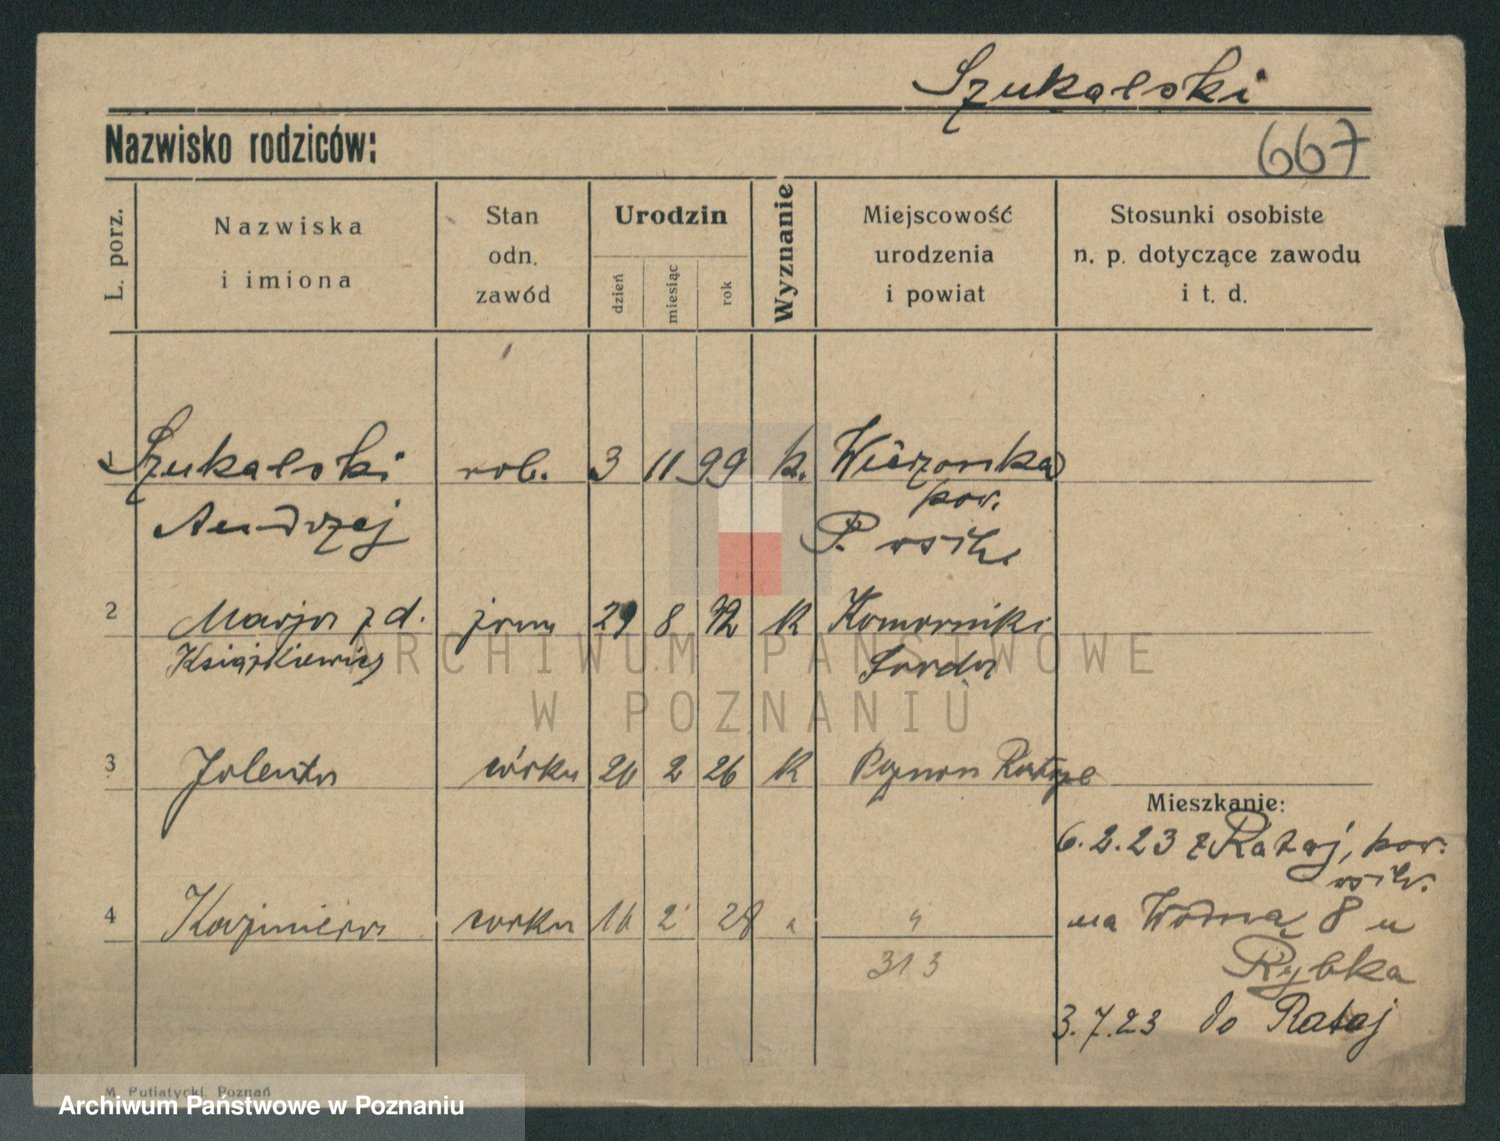 Szukalski
Nazwisko rodziców:
667
L. porz.
Nazwiska
i imiona
Stan
odn.
zawód
Urodzin
dzień
miesiąc
rok
Wyznanie
Miejscowość
urodzenia
i powiat
Stosunki osobiste
n. p. dotyczące zawodu
i t. d.
1 Szukalski rob. 3 11 99 k. Wiórzonka
pow.
Andrzej P. wsch.
2 Marja z d. żona 29 8 k Komorniki
Książkiewicz Środa
3 Jolenta córka 2 26 k Poznań Rataje
Mieszkanie:
6.2.23 z Rataj, pow.
wsch.
4 Kazimiera córka 16 2 28 " "
na Wodną 8 u
313
Rybka
3.7.23 do Rataj
M. Putiatycki, Poznań
ARCHIWUM PAŃSTWOWE
W POZNANIU
Archiwum Państwowe w Poznaniu